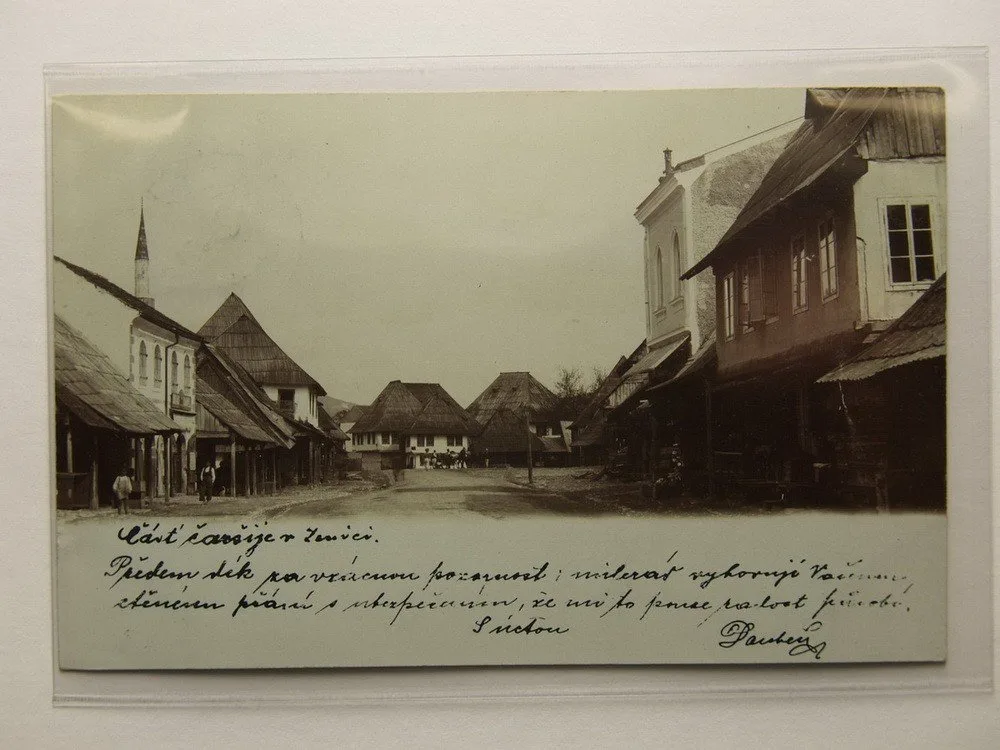 Část čaršije v Zenici.
Předem dík za vzácnou pozornost; milerád vyhovuji Vašemu
ctěnému přání s ubezpečením, že mi to pouze radost působí.
S úctou